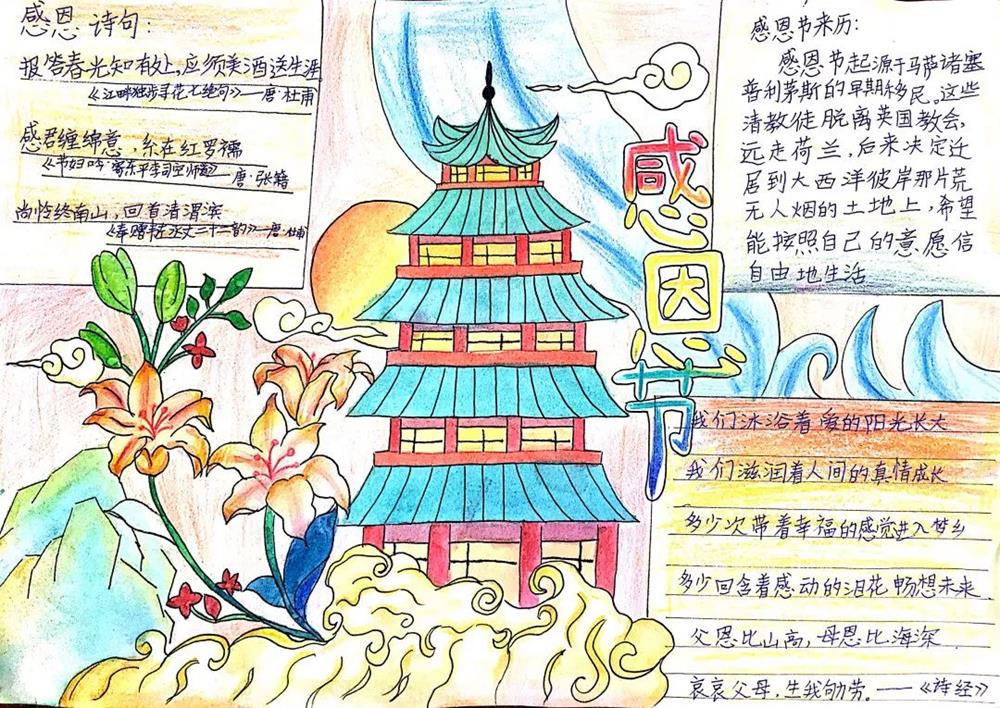 感恩诗句:
报答春光知有处,应须美酒送生涯
《江畔独步寻花七绝句》——唐·杜甫
感君缠绵意,系在红罗襦
《节妇吟·寄东平李司空师道》——唐·张籍
尚怜终南山,回首清渭滨
《奉赠韦左丞丈二十二韵》——唐·杜甫
感恩节
感恩节来历:
感恩节起源于马萨诸塞
普利茅斯的早期移民。这些
清教徒脱离英国教会,
远走荷兰,后来决定迁
居到大西洋彼岸那片荒
无人烟的土地上,希望
能按照自己的意愿信
自由地生活
我们沐浴着爱的阳光长大
我们滋润着人间的真情成长
多少次带着幸福的感觉进入梦乡
多少回含着感动的泪花畅想未来
父恩比山高,母恩比海深.
哀哀父母,生我劬劳。——《诗经》